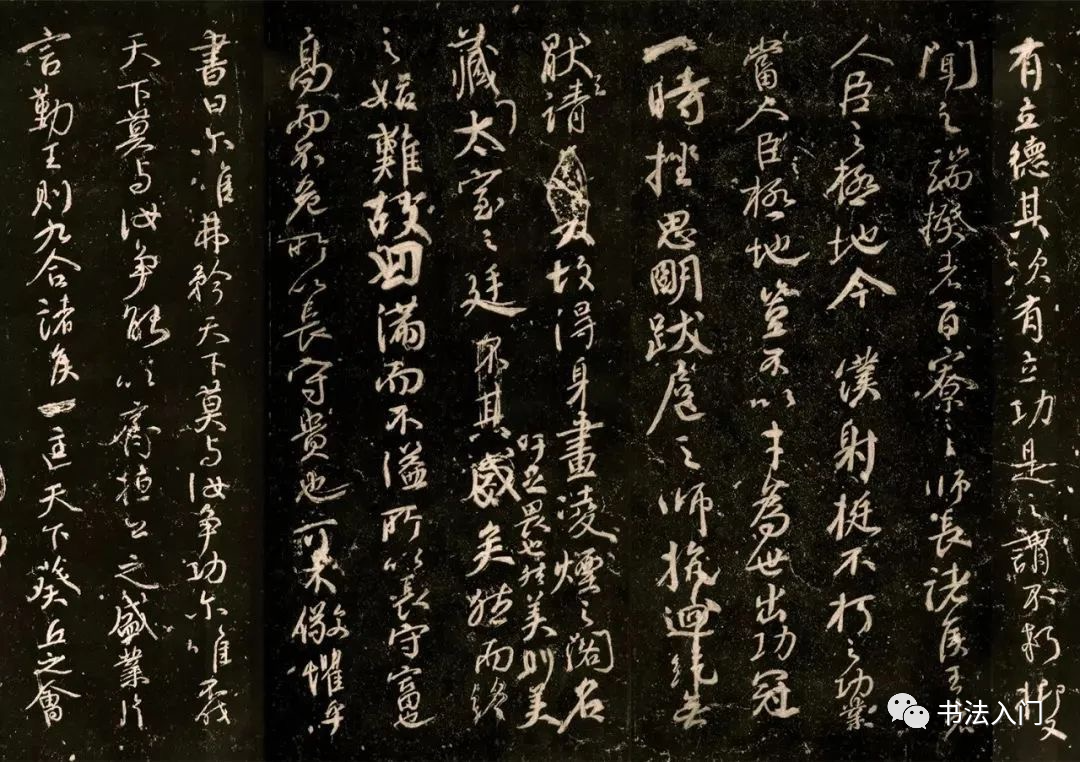 有立德其次有立功是之謂不朽抑又
聞之端揆者百寮之師長諸侯王者
人臣之極地今僕射挺不朽之功業
當人臣極地豈不以才為世出功冠
一時挫思明跋扈之師抗迴紇無
厭之請故得身畫凌煙之閣名
藏太室之廷吁足畏也然美則美矣然而終
之始難故曰滿而不溢所以長守富也
高而不危所以長守貴也可不儆懼乎
書曰尔唯弗矜天下莫与汝爭功尔唯不伐
天下莫与汝爭能以齊桓公之盛業片
言勤王則九合諸侯一匡天下葵丘之會
书法入门